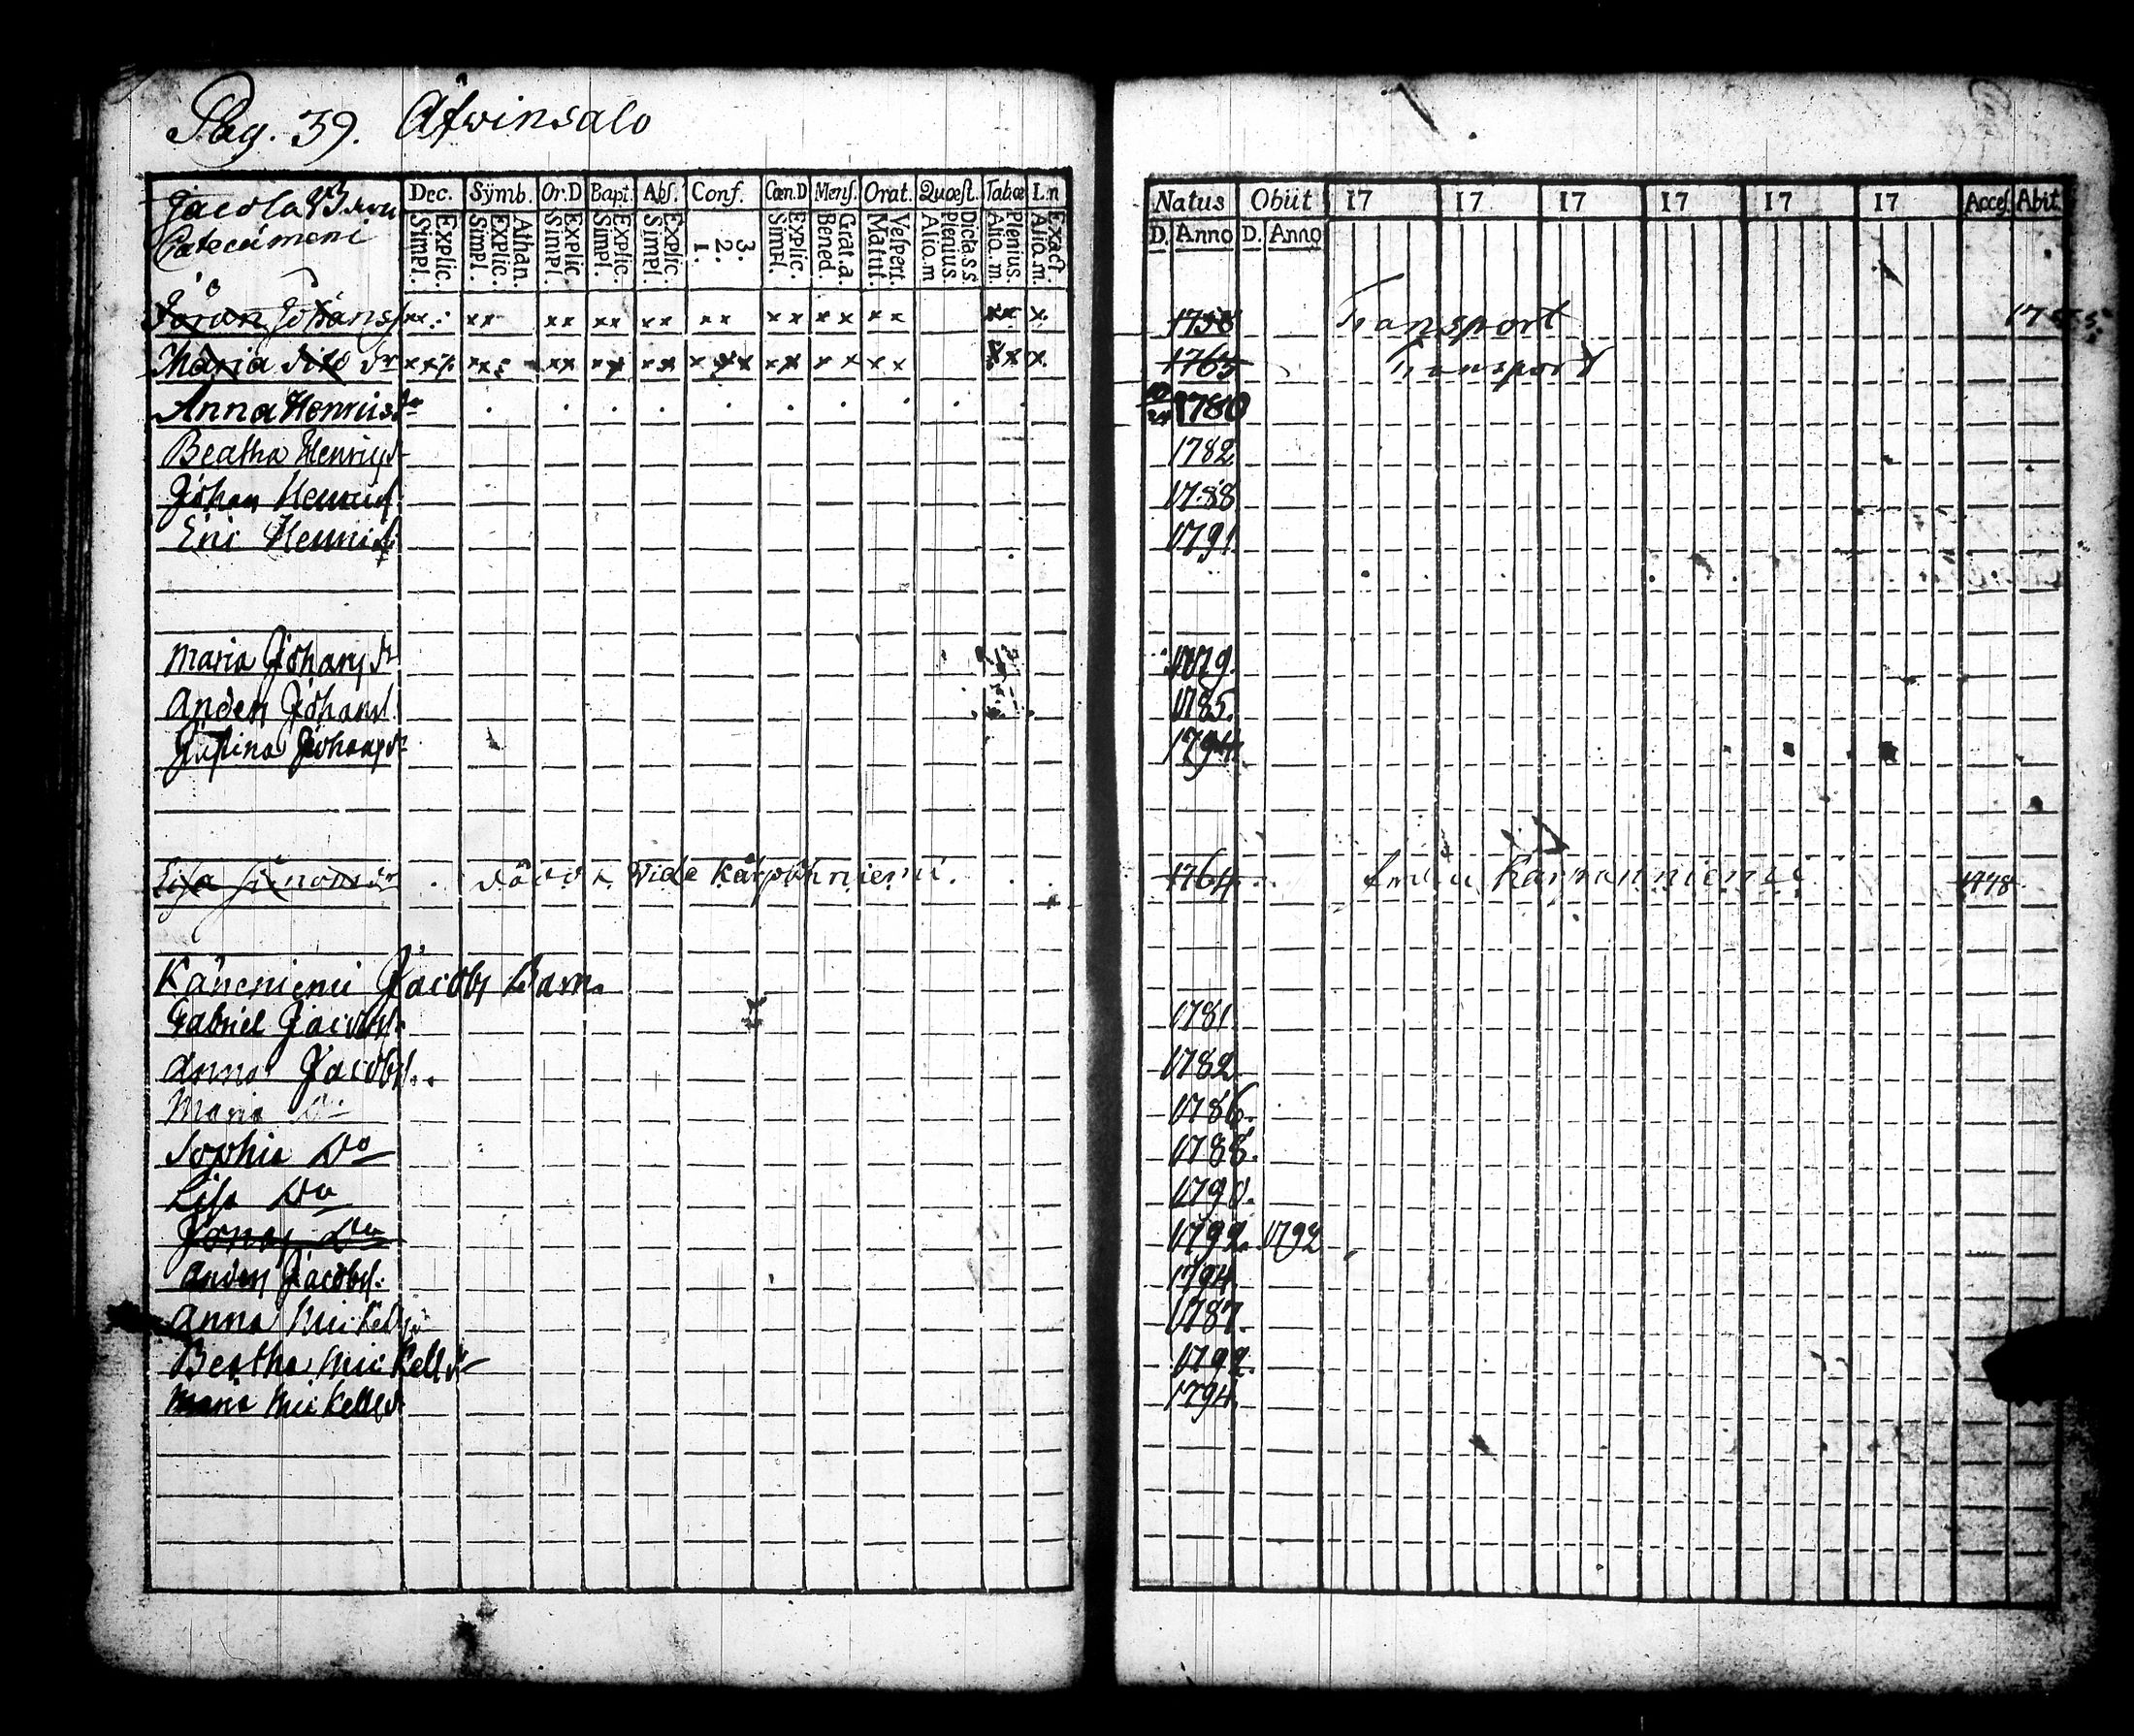 Pag. 39. Afwinsalo
Dec. Sÿmb. Or.D Bapt. Abſ. Conf. Cœn.D Menſ. Orat. Quæſt. Tabœ L.n
Natus Obiit 17 17 17 17 17 17 Acceſ. Abit.
Jacola
Catecúmeni
Explic. Simpl. Athan. Explic. Simpl. Explic. Simpl. Explic. Simpl. Explic. Simpl. 3. 2. 1. Explic. Simpl. Grat.a. Bened. Veſpert. Matut. Dicta.s.s. Plenius Alio.m Plenius. Alio.m. Exact. Alio.m.
D. Anno D. Anno
Göran Johans 1758 Transport
Maria dito dr 1765 Transport
Anna Henrics dr 1780
Beatha Henrigs dr 1782
Johan Henrics 1788
Eric Henrics 1791
Maria Johans dr 1779.
Anders Johans 1785.
Justina Johans dr 1794.
Lisa Simons dr vide Karpohniemi. 1764. från Karpanniemi
Käncniemi Jacobs Barn
Gabriel Jacobs. 1781
Anna Jacobs.. 1782
Maria Do 1786.
Sophia Do 1788.
Lisa Do 1790.
Jonas Do 1792. 1792
Anders Jacobs. 1794
Anna Mickels 1787.
Beatha Mickells dr 1792
Maria Mickells dr 1794